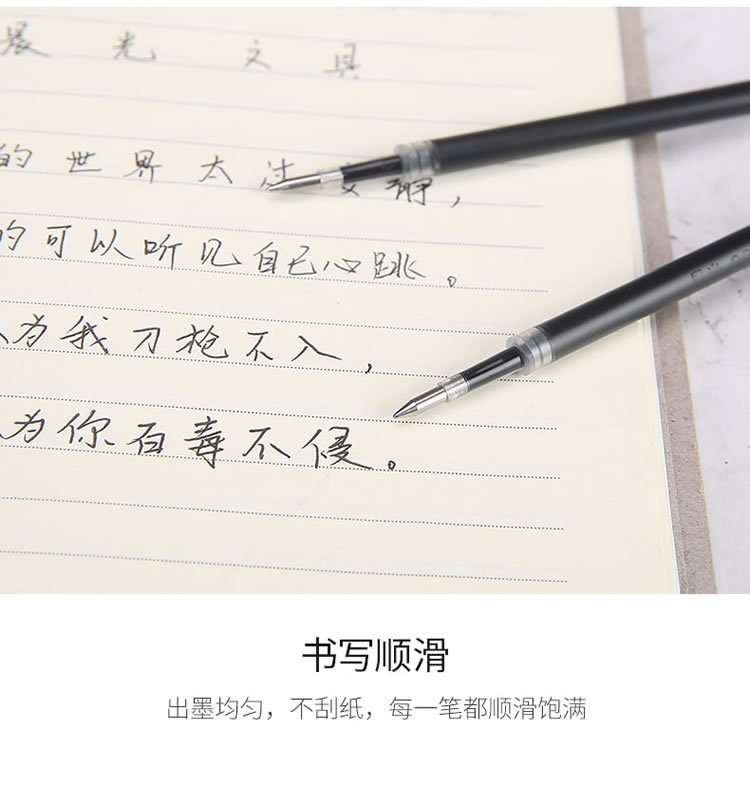 晨光文具
的世界太过安静，
的可以听见自己心跳。
为我刀枪不入，
为你百毒不侵。
书写顺滑
出墨均匀，不刮纸，每一笔都顺滑饱满